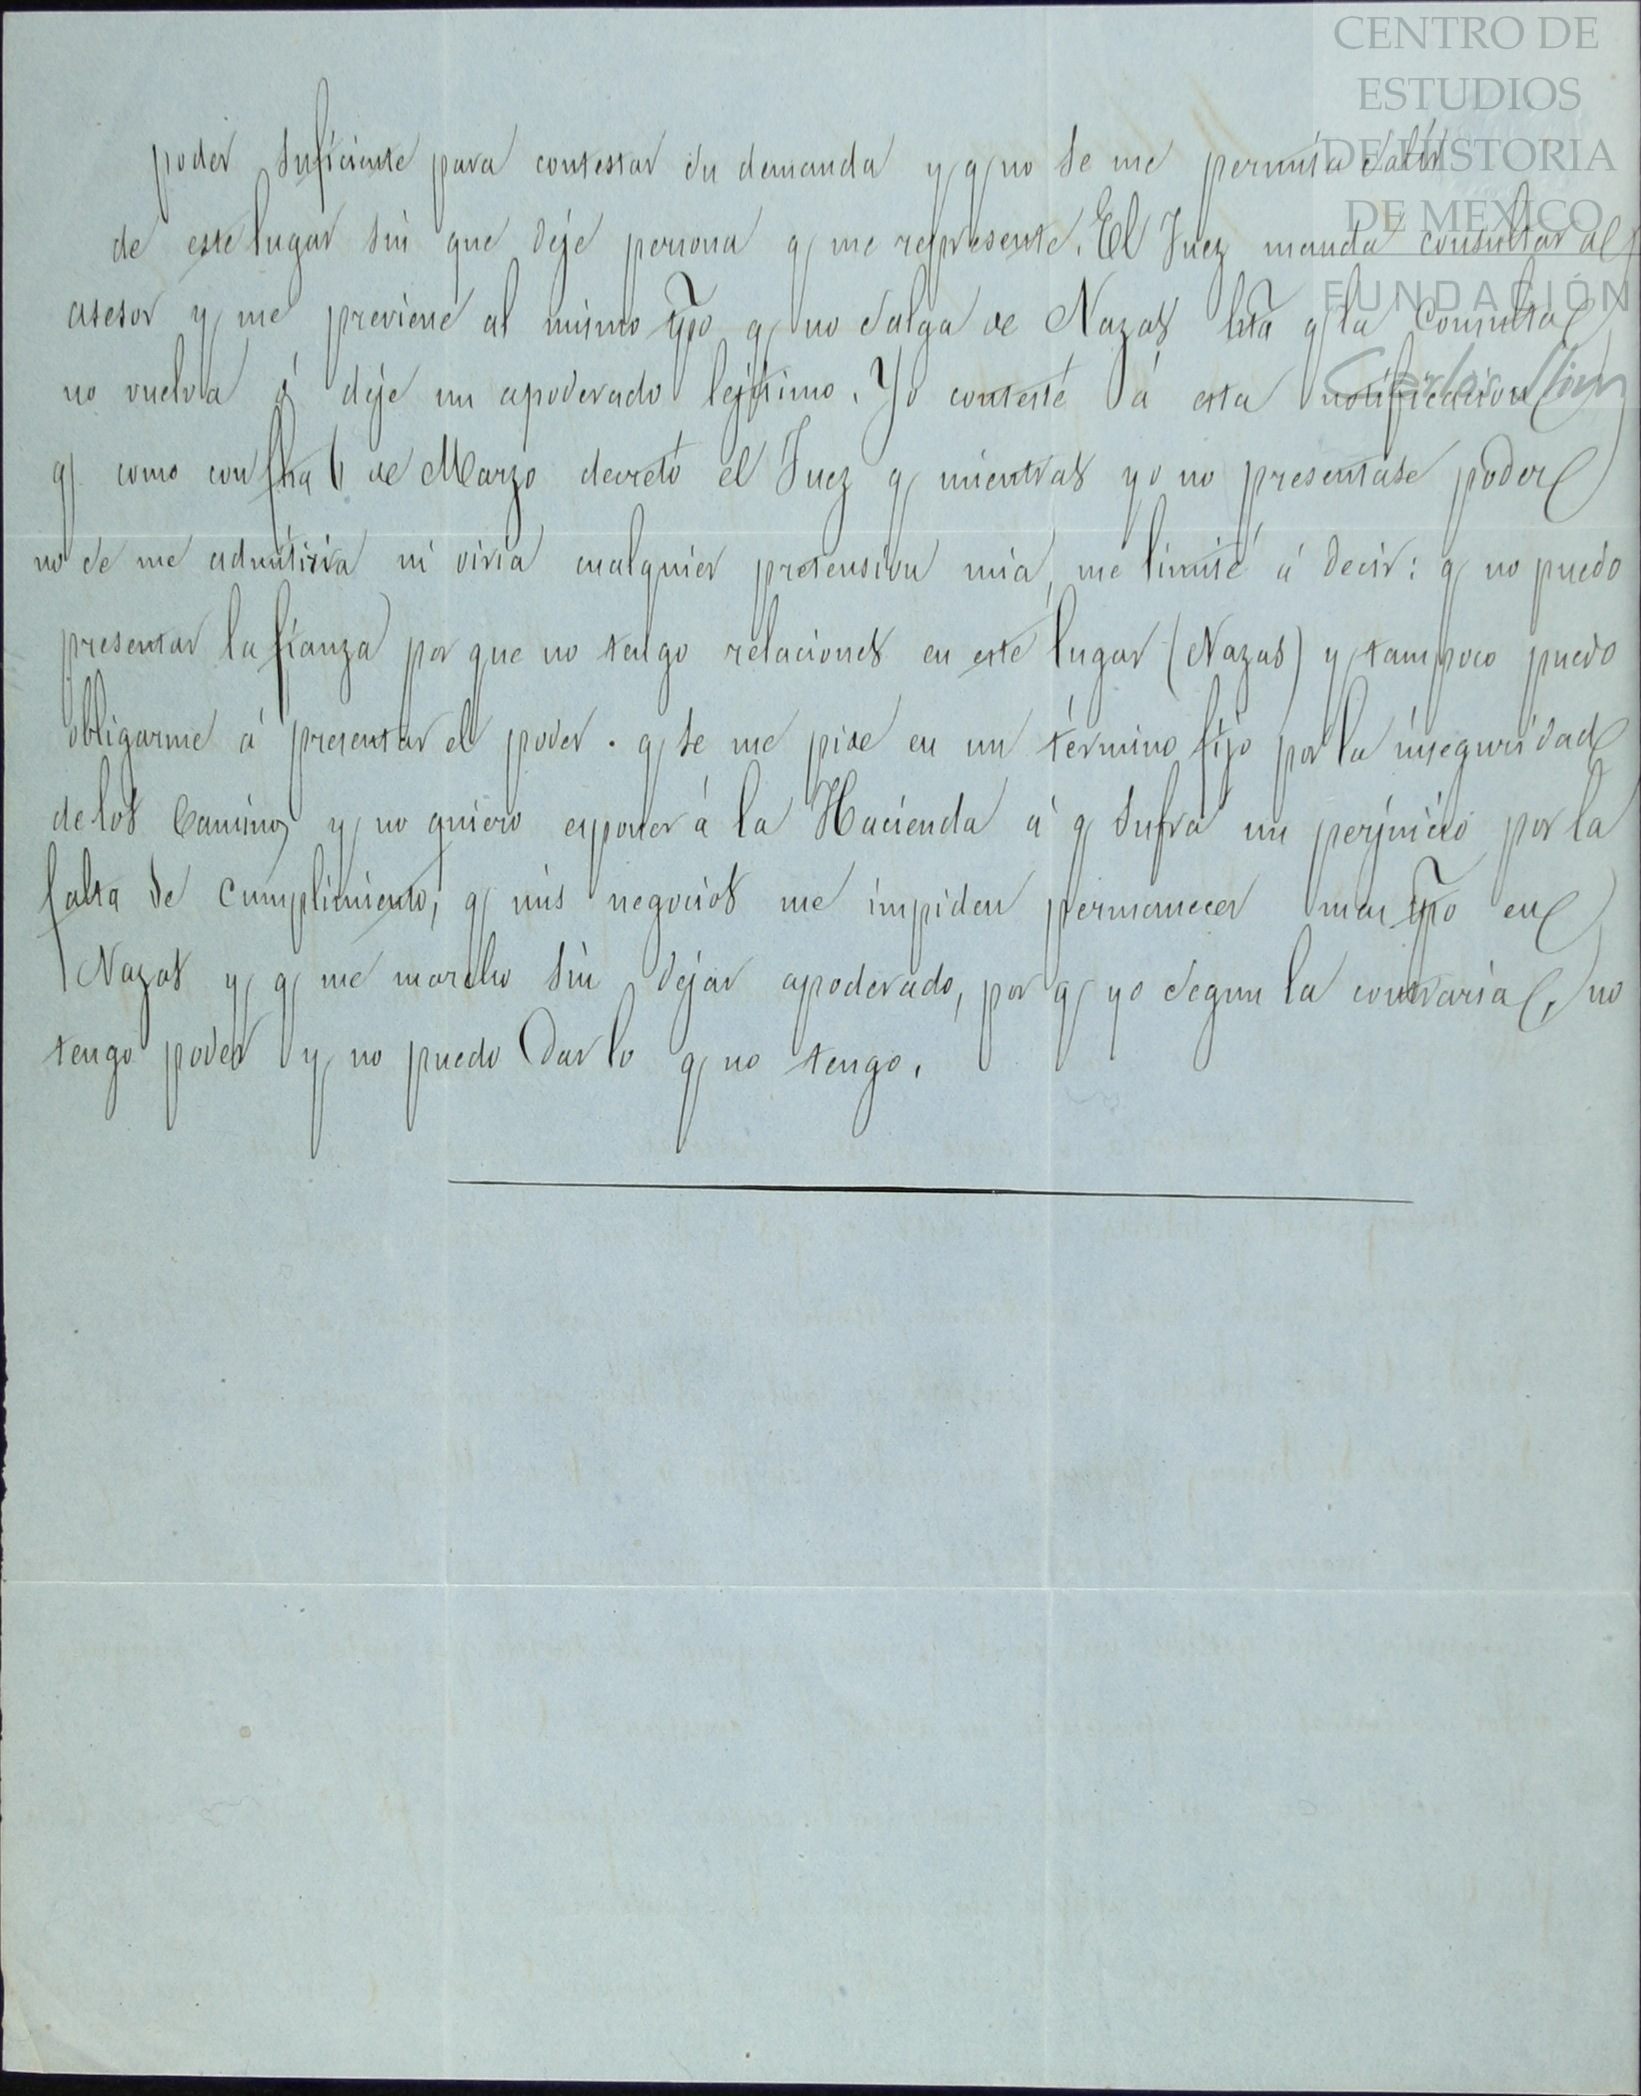 CENTRO DE
ESTUDIOS
DE HISTORIA
DE MÉXICO
FUNDACIÓN
Carlos Slim
poder suficiente para contestar su demanda y q no se me permita salir
de este lugar sin que deje persona q me represente. El Juez manda consultar al
asesor y me previene al mismo tpo q no salga de Nazas hta q la consulta
no vuelva ó deje un apoderado lejitimo. Yo contesté á esta notificacion
q como con fha 6 de Marzo decretó el Juez q mientras yo no presentase poder
no se me admitiria ni oiria cualquier pretension mia, me limité á decir: q no puedo
presentar la fianza por que no tengo relaciones en este lugar (Nazas) y tampoco puedo
obligarme á presentar el poder. q se me pide en un término fijo por la inseguridad
de los Caminos y no quiero esponer á la Hacienda á q sufra un perjuicio por la
falta de cumplimiento; q mis negocios me impiden permanecer mas tpo en
Nazas y q me marcho sin dejar apoderado, por q yo segun la contraria, no
tengo poder y no puedo dar lo q no tengo.